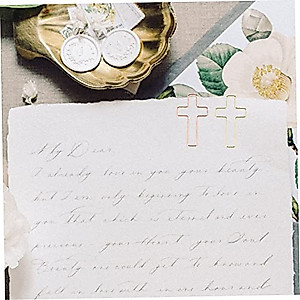 My Dear,
I already love in you your beauty,
but I am only beginning to love in
you that which is eternal and ever
precious - your Heart, your Soul.
Beauty one could get to know and
fall in love with in one hour and